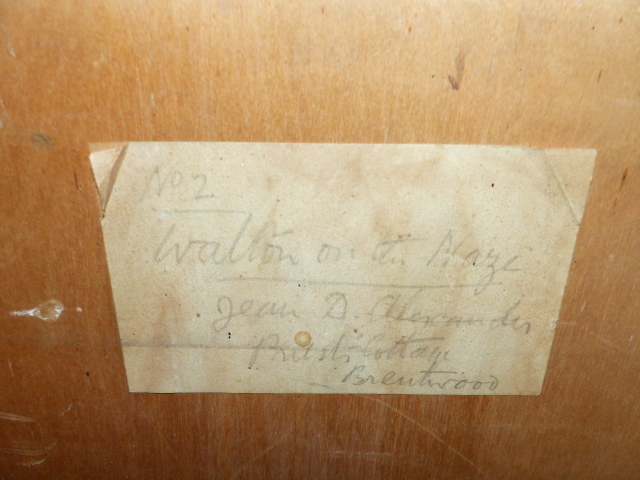 No 2
Walton on the Naze
Jean D. Alexander
Priests Cottage
Brentwood